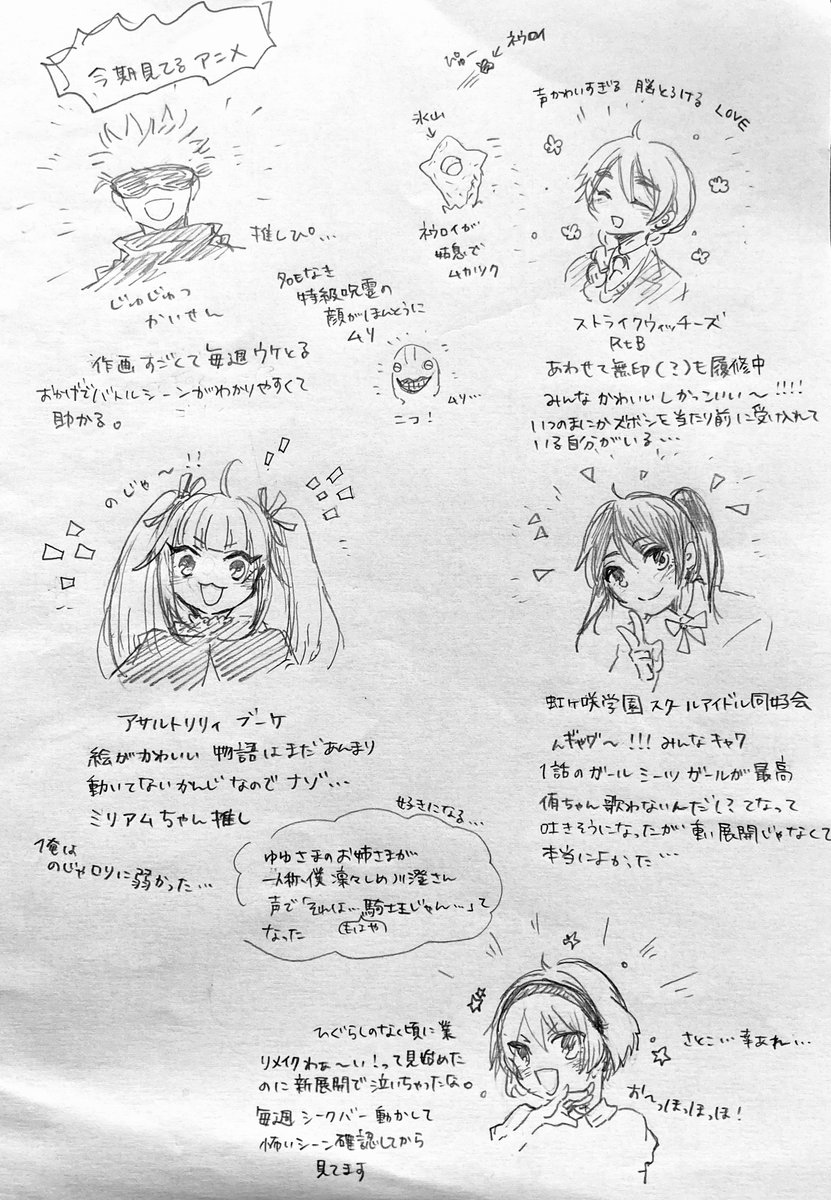 今期見てるアニメ
推しぴ。...
じゅじゅつ
かいせん
作画すごくて毎週ウケとる
おかげでバトルシーンがわかりやすくて
助かる。
ぴゅー
ネウロイ
氷山
ネウロイが
姑息で
ムカツク
名もなき
特級呪霊の
顔がほんとうに
ムリ
ムリ...
こつ!
声かわいすぎる 脳とろける LOVE
ストライクウィッチーズ
RtB
あわせて無印(?)も履修中
みんなかわいいしかっこいい〜!!!!
いつのまにかズボンを当たり前に受け入れて
いる自分がいる...
のじゃ〜!!
アサルトリリィ ブーケ
絵がかわいい 物語はまだあんまり
動いてないかんじなのでナゾ...
ミリアムちゃん推し
俺は
のじゃロリに弱かった...
虹ヶ咲学園 スクールアイドル同好会
んギャワ〜!!! みんなキャワ
1話のガールミーツガールが最高
侑ちゃん歌わないんだし?てなって
吐きそうになったが重い展開じゃなくて
本当によかった...
好きになる...
ゆゆさまのお姉さまが
一人称僕 凛々しめ川澄さん
声で「それは...騎士王じゃん...」て
(もはや)
なった
ひぐらしのなく頃に業
リメイクわぁ〜い!って見始めた
のに新展開で泣いちゃったな。
毎週シークバー動かして
怖いシーン確認してから
見てます
さとこ...幸あれ...
お〜っほっほっほ!